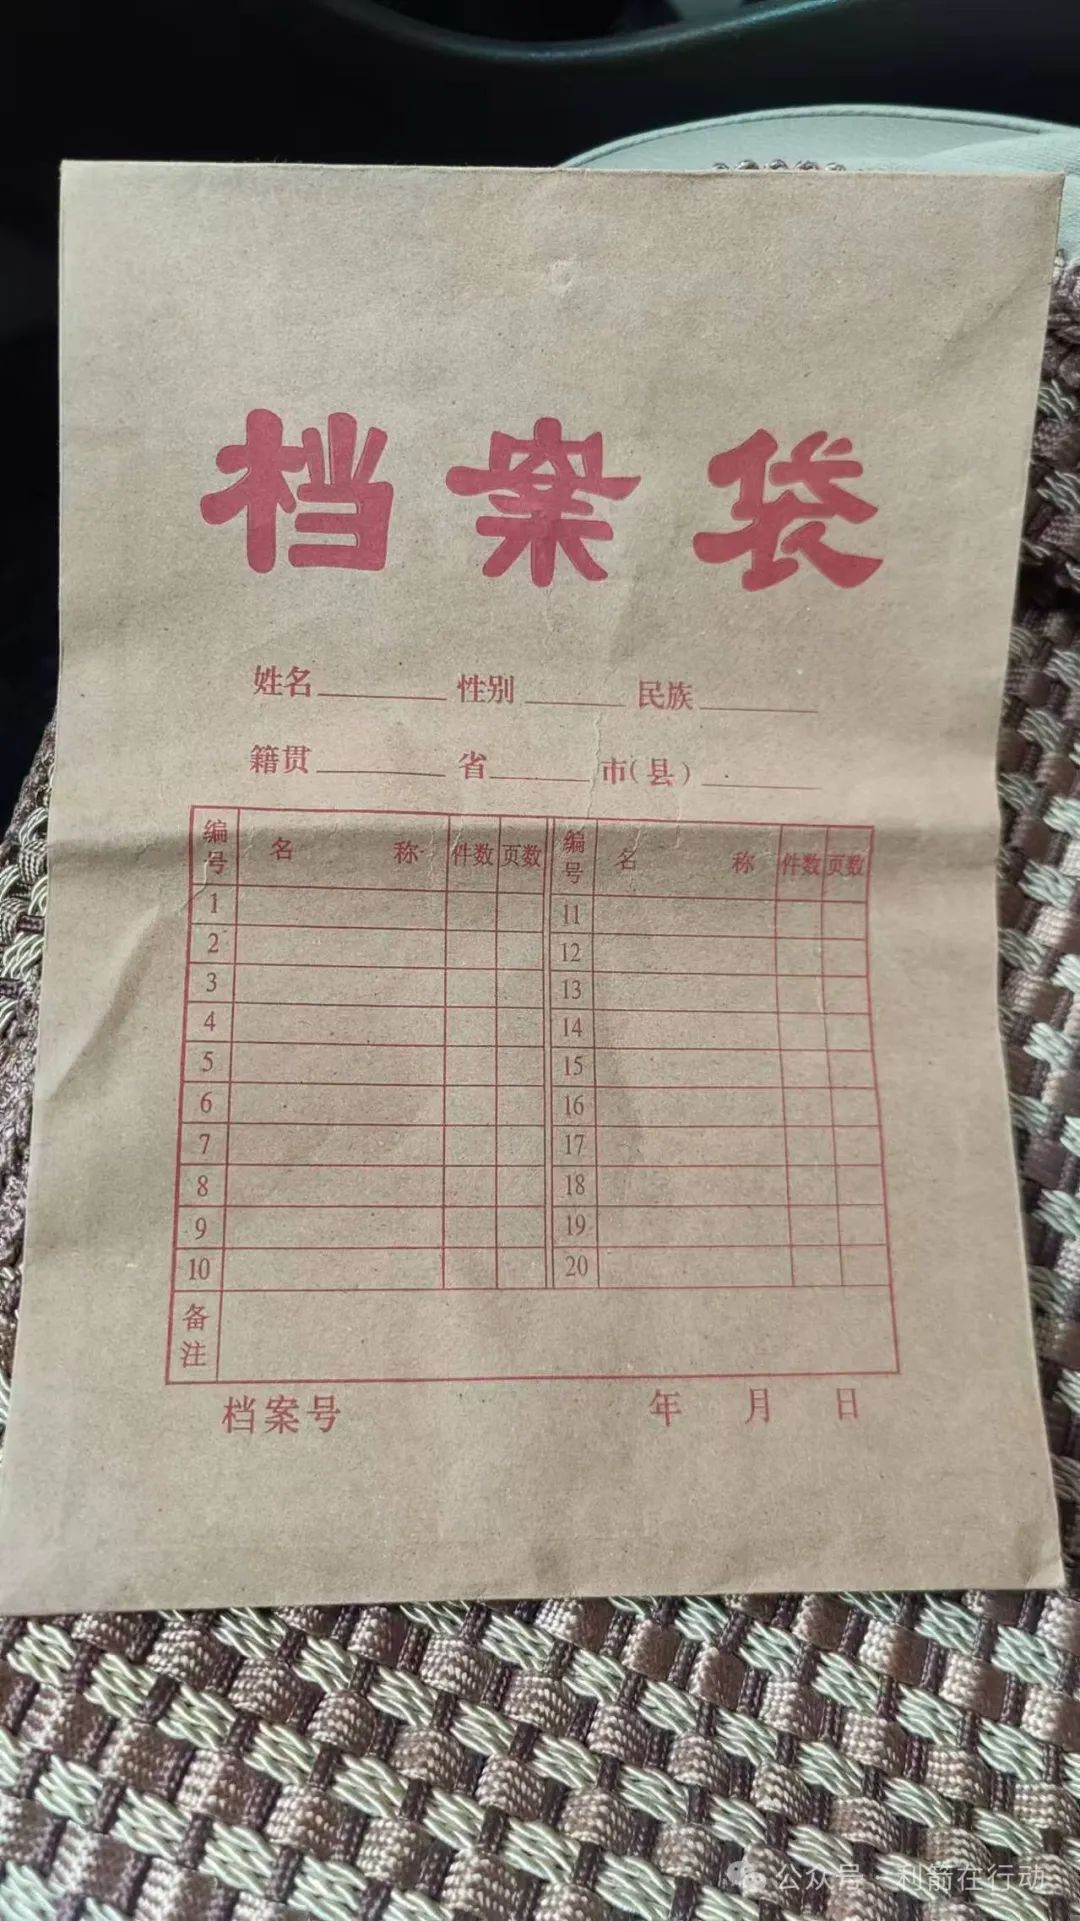 档案袋
姓名 性别 民族
籍贯 省 市(县)
编号 名称 件数 页数 编号 名称 件数 页数
1 11
2 12
3 13
4 14
5 15
6 16
7 17
8 18
9 19
10 20
备注
档案号 年 月 日
公众号·利箭在行动